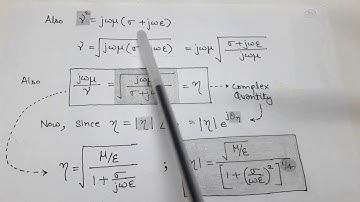 Also γ² = jωμ(σ + jωε)
γ = √jωμ(σ jωε) = jωμ √(σ+jωε / jωμ)
Also jωμ / γ = √(jωμ / σ+jω) = η → Complex
Quantity
Now, since η = |η| = |η| e^jθη
η = √(μ/ε / 1 + σ/jωε) ; |η| = √μ/ε / [1 + (σ/ωε)²]^1/4